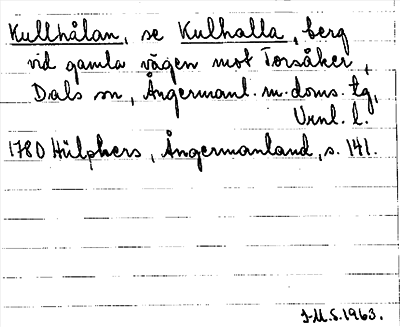 Kullhålan, se Kulhalla, berg
vid gamla vägen mot Torsåker,
Dals sn, Ångermanl. m. doms. tg,
Vrnl. l.
1780 Hülphers, Ångermanland, s. 141.
J-M.S. 1963.